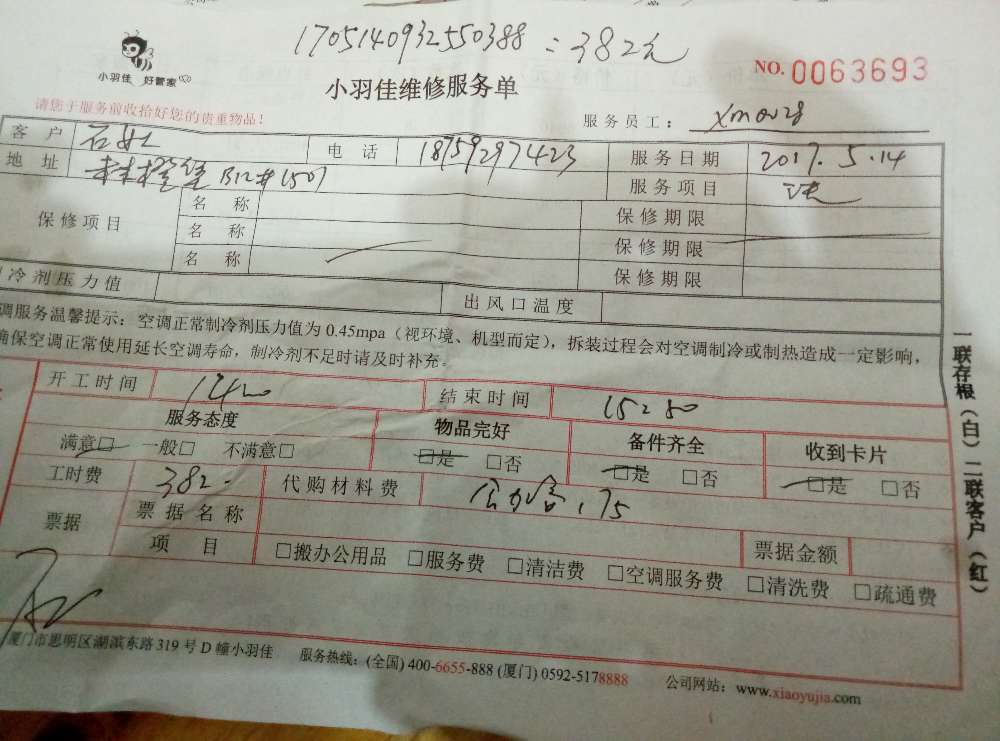 170514093255 0388 = 382元
小羽佳 好管家
NO. 0063693
小羽佳维修服务单
请您于服务前收拾好您的贵重物品!
服务员工:
客户 石女士 电话 18759297423 服务日期 2017.5.14
地址 B12#1501 服务项目
保修项目 名称 保修期限
名称 保修期限
名称 保修期限
冷剂压力值 出风口温度
调服务温馨提示:空调正常制冷剂压力值为 0.45mpa(视环境、机型而定),拆装过程会对空调制冷或制热造成一定影响,
确保空调正常使用延长空调寿命,制冷剂不足时请及时补充。
开工时间 结束时间
服务态度 物品完好 备件齐全 收到卡片
满意□ 一般□ 不满意□ □是 □否 □是 □否 □是 □否
工时费 382- 代购材料费
票据 票据名称
项目 □搬办公用品 □服务费 □清洁费 □空调服务费 □清洗费 □疏通费 票据金额
厦门市思明区湖滨东路 319 号 D 幢小羽佳 服务热线:(全国) 400-6655-888 (厦门) 0592-5178888 公司网站:www.xiaoyujia.com
一联存根(白)二联客户(红)